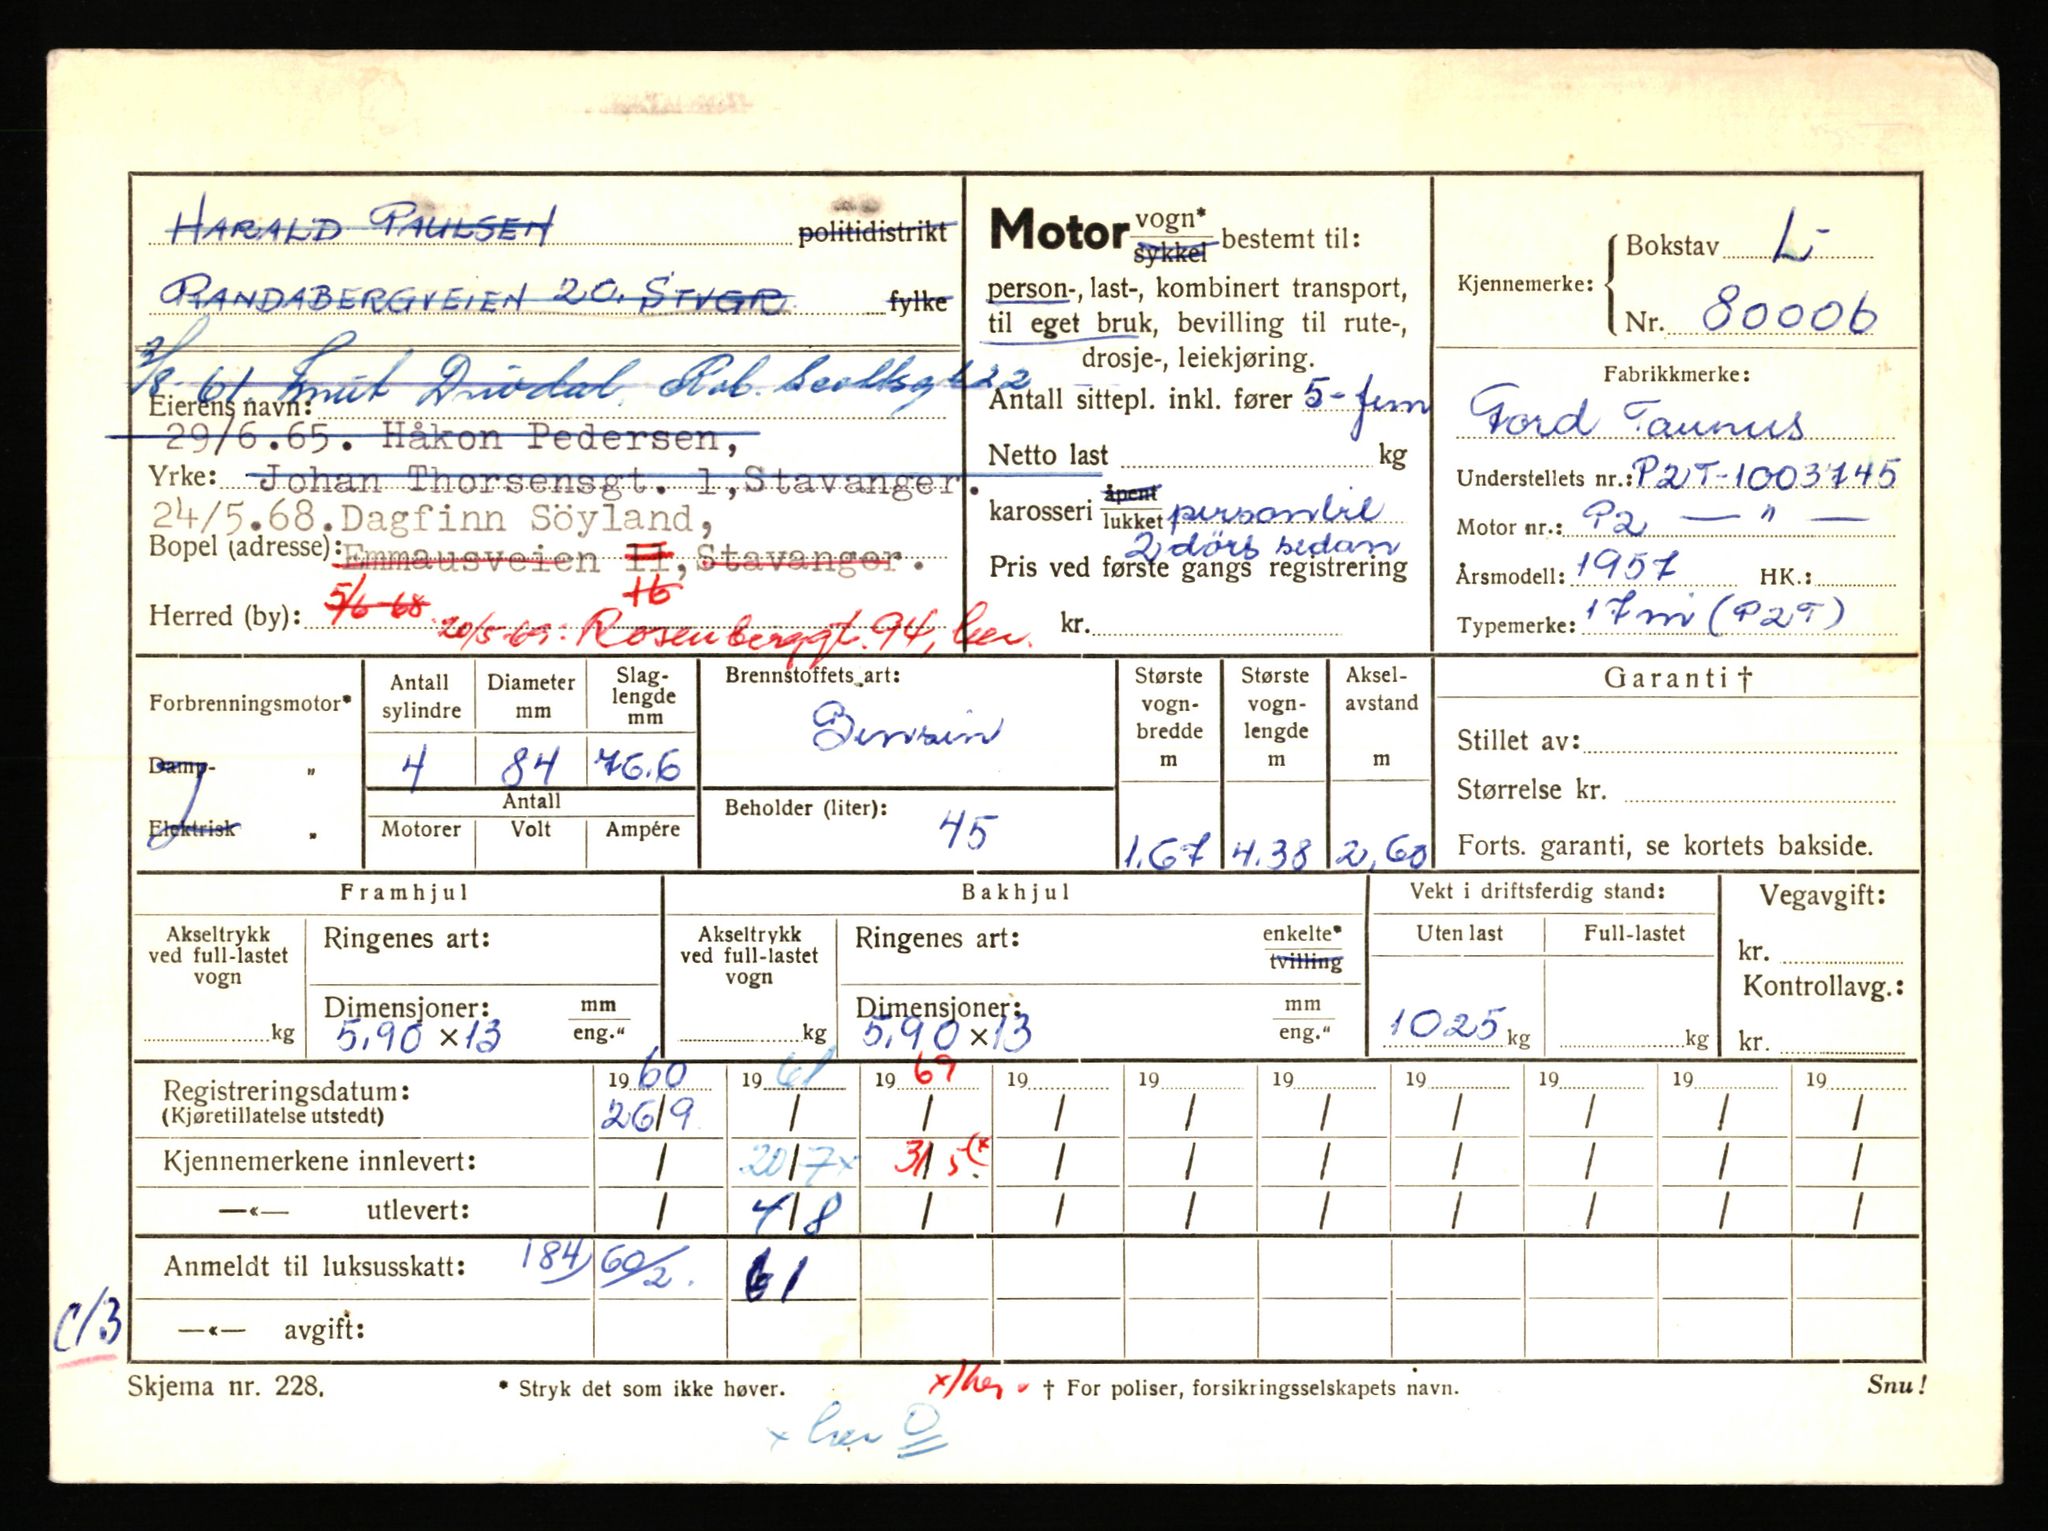 HARALD PAULSEN politidistrikt
RANDABERGVEIEN 20. STVGR. fylke
3/8-61. Knut Drivdal,
Eierens navn:
29/6.65. Håkon Pedersen,
Yrke: Johan Thorsensgt. 1, Stavanger.
24/5.68. Dagfinn Söyland,
Bopel (adresse): Emmausveien 11, Stavanger.
5/6-68 16
Herred (by): 20/5-69: Rosenberggt. 94, her.
Motor vogn* sykkel bestemt til:
person-, last-, kombinert transport,
til eget bruk, bevilling til rute-,
drosje-, leiekjøring.
Antall sittepl. inkl. fører 5-fem
Netto last kg
karosseri åpent lukket personbil
2 dörs sedan
Pris ved første gangs registrering
kr.
Kjennemerke: Bokstav L-
Nr. 80006
Fabrikkmerke:
Ford Taunus
Understellets nr.: P2T-1003745
Motor nr.: P2 — " —
Årsmodell: 1957 HK.:
Typemerke: 17m (P2T)
Forbrenningsmotor*
Damp- "
Elektrisk "
Antall sylindre
4
Diameter mm
84
Slag-
lengde
mm
76.6
Antall
Motorer Volt Ampére
Brennstoffets art:
Bensin
Beholder (liter):
45
Største
vogn-
bredde
m
1.67
Største
vogn-
lengde
m
4.38
Aksel-
avstand
m
2,60
Garanti †
Stillet av:
Størrelse kr.
Forts. garanti, se kortets bakside.
Framhjul
Akseltrykk
ved full-lastet
vogn
kg
Ringenes art:
Dimensjoner: mm
5.90 x 13 eng."
Bakhjul
Akseltrykk
ved full-lastet
vogn
kg
Ringenes art: enkelte*
tvilling
Dimensjoner: mm
5.90 x 13 eng."
Vekt i driftsferdig stand:
Uten last Full-lastet
1025 kg kg
Vegavgift:
kr.
Kontrollavg.:
kr.
Registreringsdatum: 1960 1961 1969 19 19 19 19 19 19 19
(Kjøretillatelse utstedt) 26/9 / / / / / / / / /
Kjennemerkene innlevert: / 20/7 x 3/5 (x / / / / / / /
—«— utlevert: / 4/8 / / / / / / / /
Anmeldt til luksusskatt: 184/60/2. 61
C/3
—«— avgift:
Skjema nr. 228. * Stryk det som ikke høver. x/her. † For poliser, forsikringsselskapets navn. Snu!
x her O